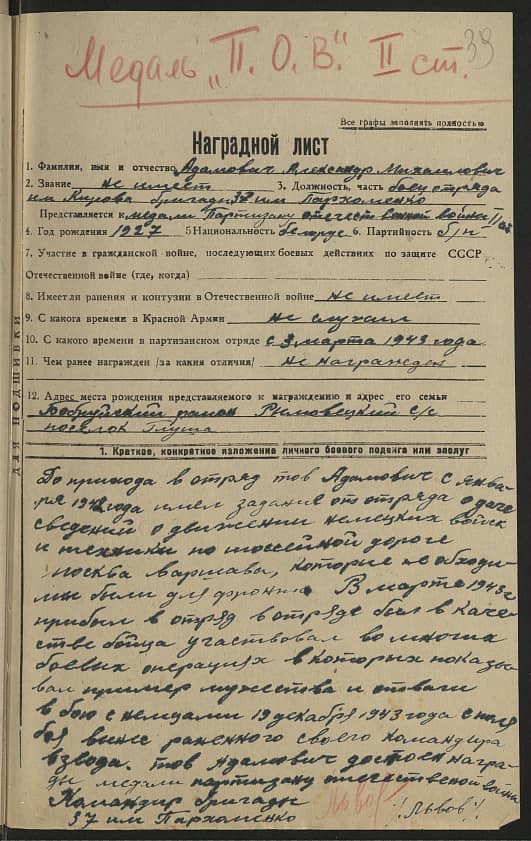 39
Медаль „П. О. В." II ст.
Все графы заполнять полностью
Наградной лист
1. Фамилия, имя и отчество Адамович Александр Михайлович
2. Звание не имеет 3. Должность, часть боец отряда
им Кирова бригады 37 им Пархоменко
Представляется к медали Партизану отечественной войны II ст
4. Год рождения 1927 5 Национальность белорус 6. Партийность б/п
7. Участие в гражданской войне, последующих боевых действиях по защите СССР
Отечественной войне (где, когда)
8. Имеет ли ранения и контузии в Отечественной войне не имеет
9. С какога времени в Красной Армии не служил
10. С какого времени в партизанском отряде с 3 марта 1943 года
11. Чем ранее награжден /за какия отличия/ не награжден
12. Адрес места рождения представляемого к награждению и адрес его семьи
Бобруйский район Рымовецкий с/с
поселок Глуша
ДЛЯ ПОДШИВКИ
1. Краткое, конкретное изложение личного боевого подвига или заслуг
До прихода в отряд тов Адамович с янва-
ря 1942 года имел задание от отряда о даче
сведений о движении немецких войск
и техники по шоссейной дороге
Москва Варшава, которые необходи-
мы были для фронта. В марте 1943 г
прибыл в отряд в отряде был в каче-
стве бойца участвовал во многих
боевых операциях в которых показы-
вал пример мужества и отваги
в бою с немцами 19 декабря 1943 года с поля
боя вынес раненного своего командира
взвода. тов Адамович достоен награ-
ды медали партизану отечественной войны
Командир бригады Львов
37 им Пархоменко /Львов/